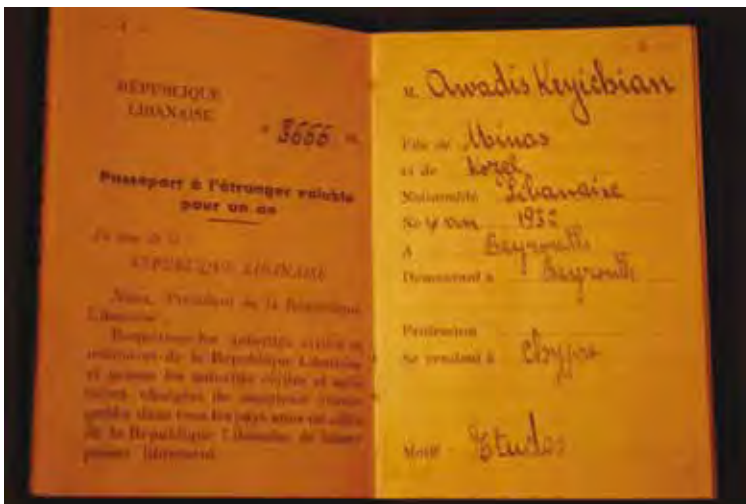 RÉPUBLIQUE
LIBANAISE
Passeport à l'étranger valable
pour un an
RÉPUBLIQUE LIBANAISE
Nous, Président de la République
Libanaise
Requérons les autorités civiles et
militaires de la République Libanaise
et prions les autorités civiles et
de la République Libanaise de laisser
passer librement
M. Awadis Keyichian
Fils de Minas
et de
Nationalité Libanaise
Né en 1932
A Beyrouth
Demeurant à Beyrouth
Profession
Se rendant à Chypre
Motif Etudes